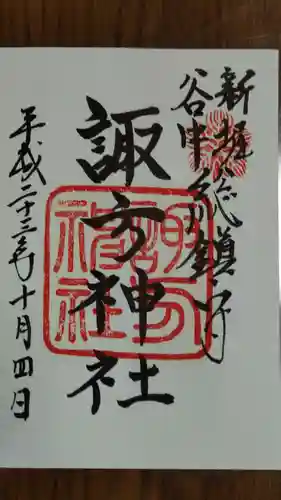 新堀
谷中
総鎮守
諏方神社
諏方神社
平成二十三年十月四日